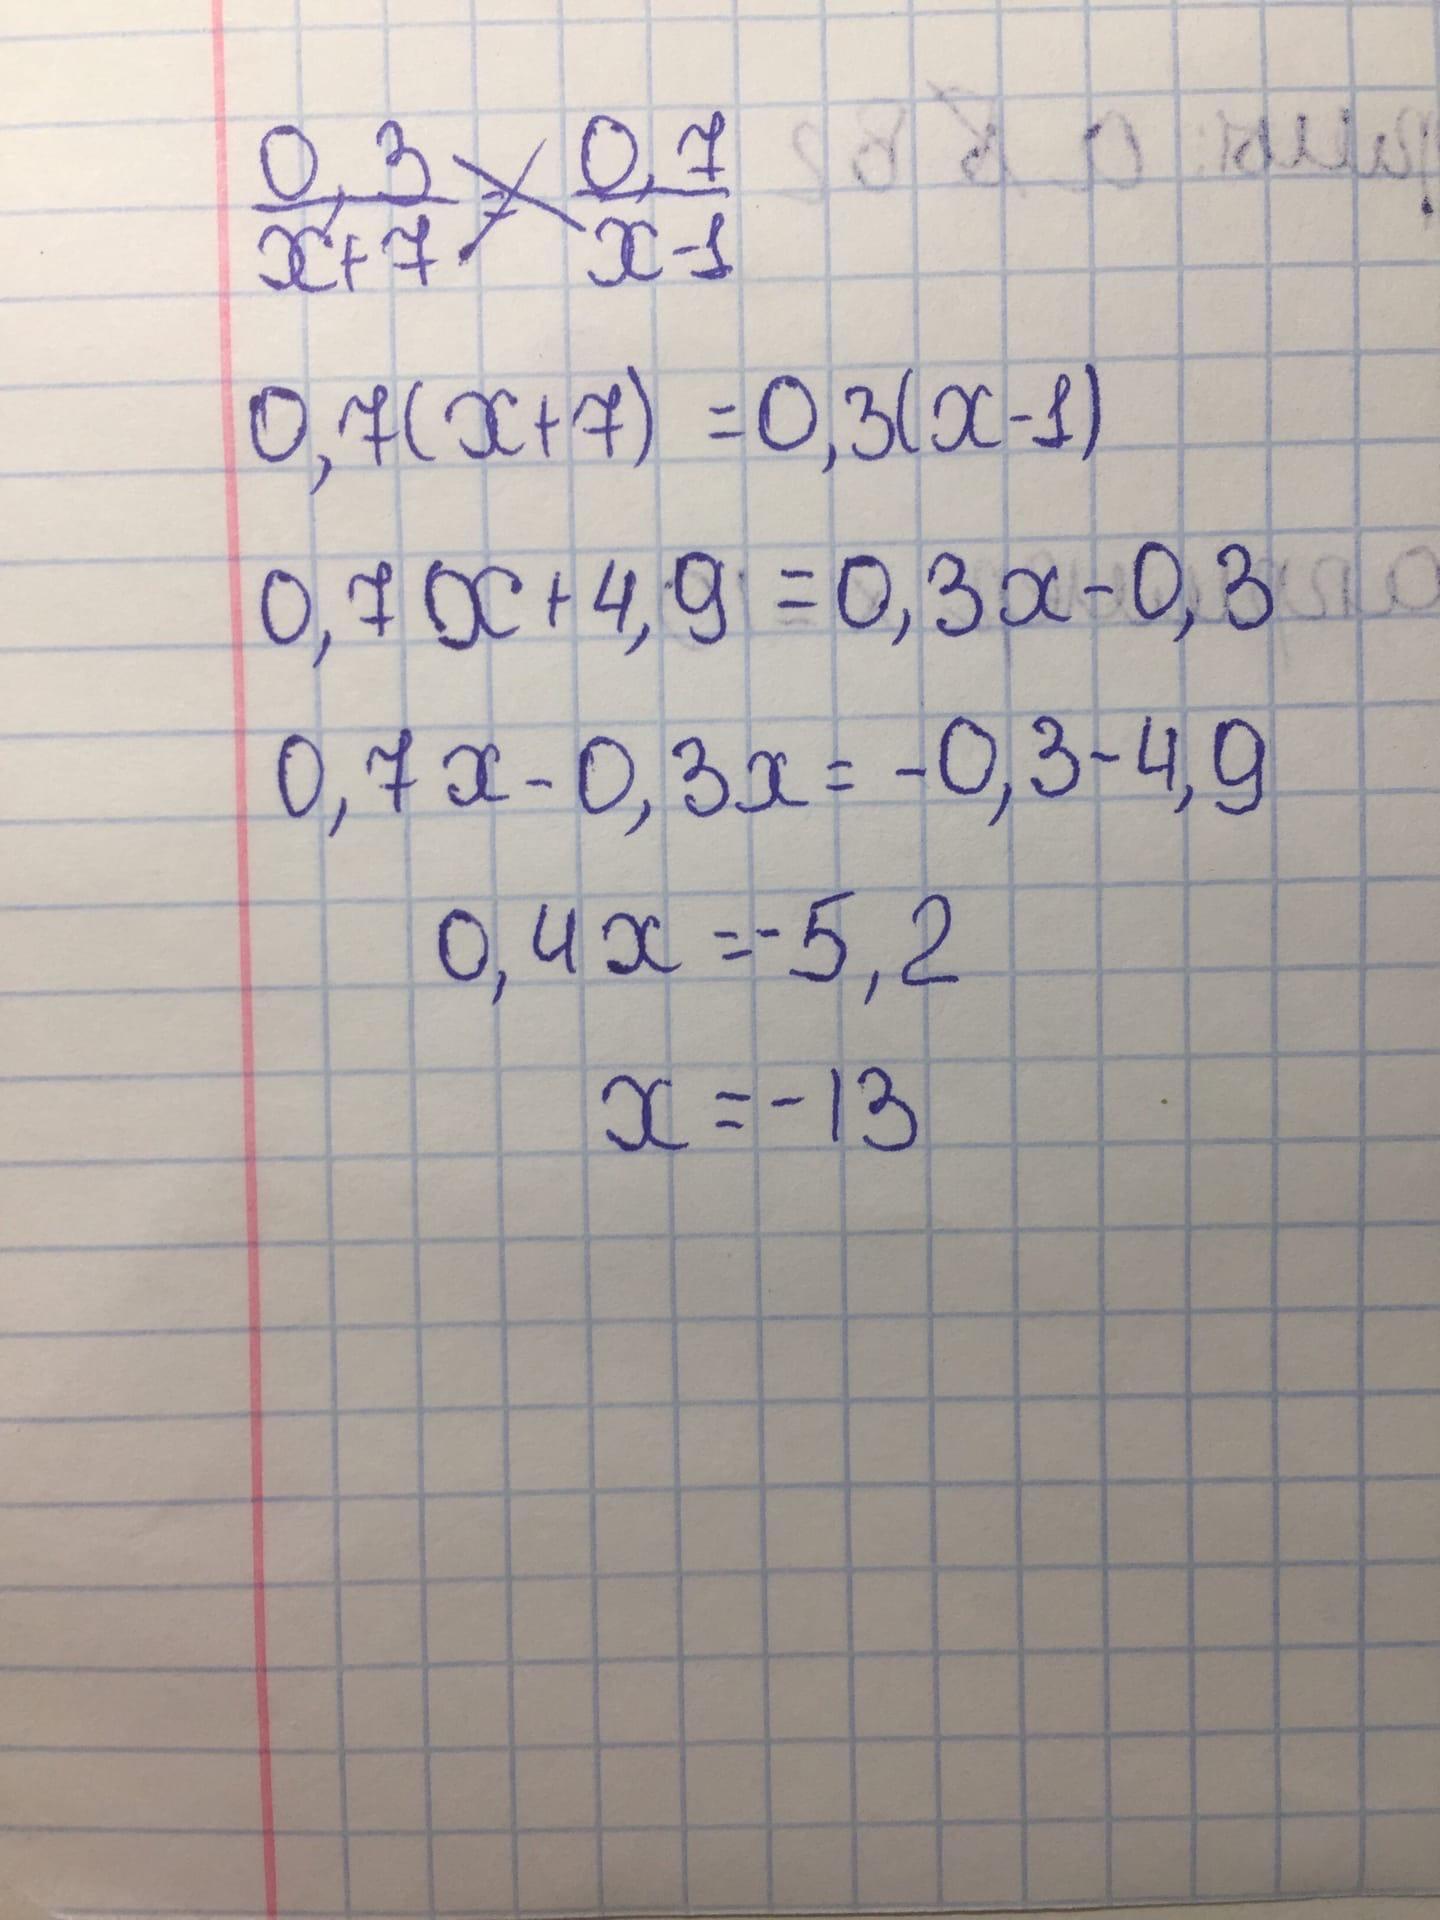 0,3/x+7 = 0,7/x-1
0,7(x+7) =0,3(x-1)
0,7x+4,9 =0,3x-0,3
0,7x-0,3x= -0,3-4,9
0,4x =-5,2
x =-13